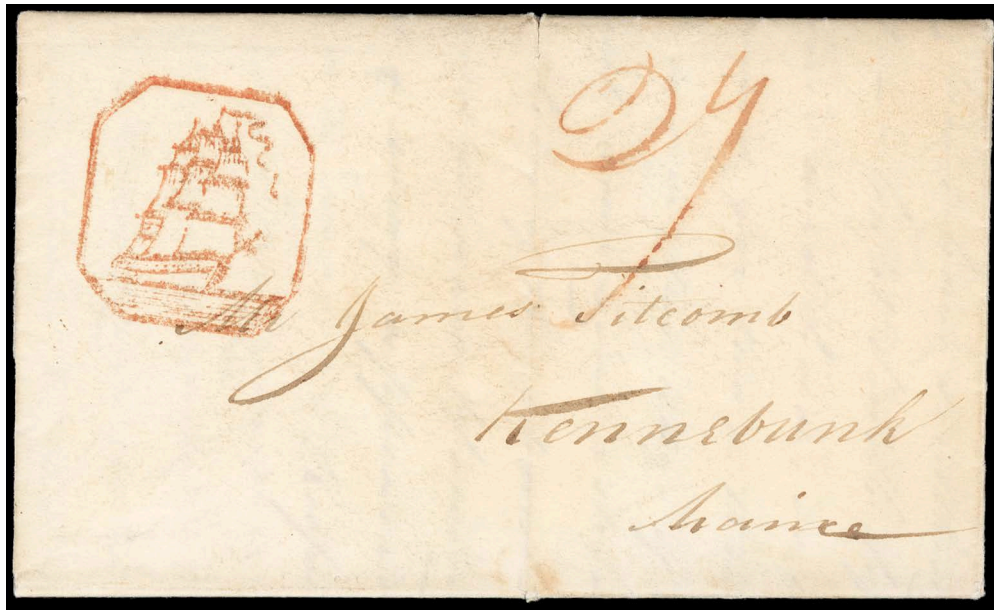 Mr James Titcomb
Kennebunk
Maine